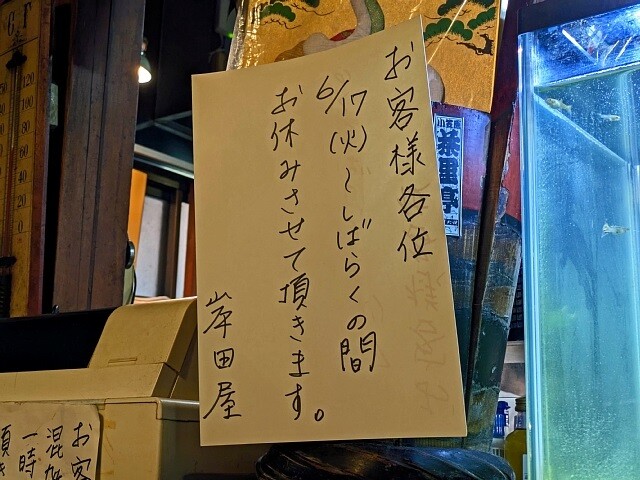 お客様各位
6/17(火)〜しばらくの間
お休みさせて頂きます。
岸田屋
茶里亭
お客
混
一時
頂き
120
100
80